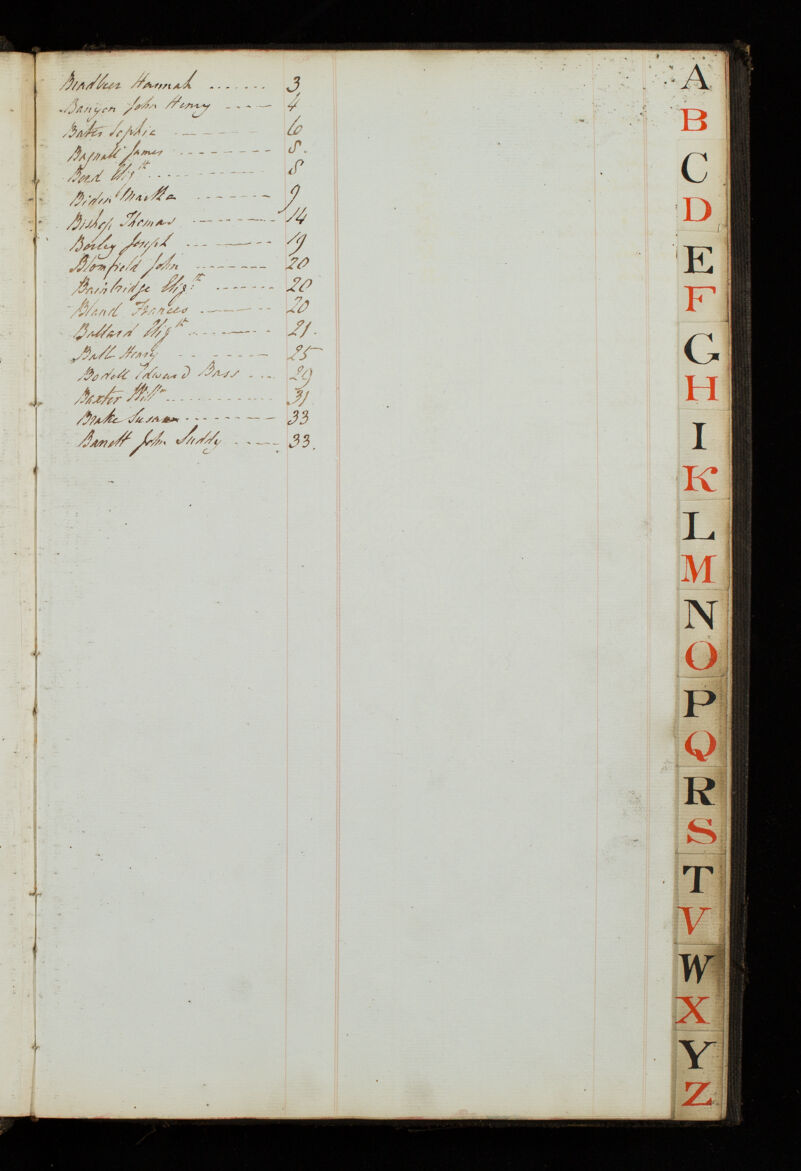 Bradbeer Hannah ....... 3
Banyon John Henry ---- 4
Bates Sophia ------ 6
Bagnall James -------- 8.
Bond Eliz.th ........ 8
Biden Martha ------- 9
Bishop Thomas ------- 14
Boxley Joseph ------- 19
Blomfield John ------- 20
Bainbridge Eliz.th ------ 20
Bland Frances ------ 20
Ballard Eliz.th ------- 21.
Ball Henry ------ 25
Edward Bass --- 29
Baxter Will.m .......... 31
Brake Susan -------- 33
Barrett John Suddy ----- 33.
A
B
C
D
E
F
G
H
I
K
L
M
N
O
P
Q
R
S
T
V
W
X
Y
Z